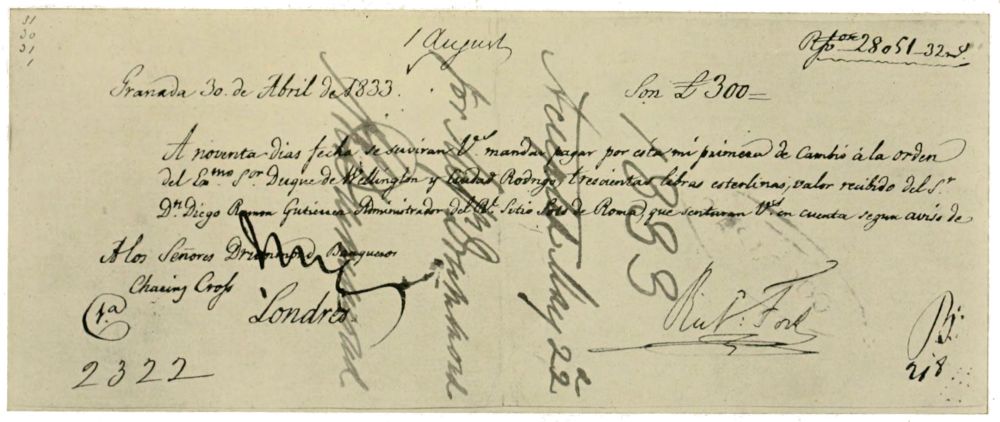 31
30
31
1
1 August
28051-32
Granada 30. de Abril de 1833.
Son £ 300=
A noventa dias fecha se serviran V.s mandar pagar por esta mi primera de Cambio á la orden
del Ex.mo S.or Duque de Wellington y Ciudad Rodrigo, trescientas libras esterlinas, valor recibido del S.r
D.n Diego Ramon Gutierrez Administrador del R.l Sitio Soto de Roma, que sentaran V.s en cuenta segun aviso de
A los Señores Drummond Banqueros
Chaeing Cross
Londres
(1.a)
2322
Ric.d Ford
B.
218
Accepted May 22
1833
for
Drummond